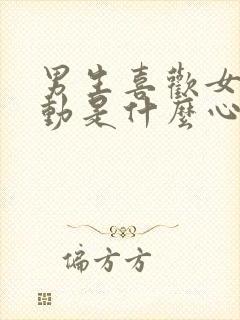 男生喜歡女
動是什麼心
偏方方